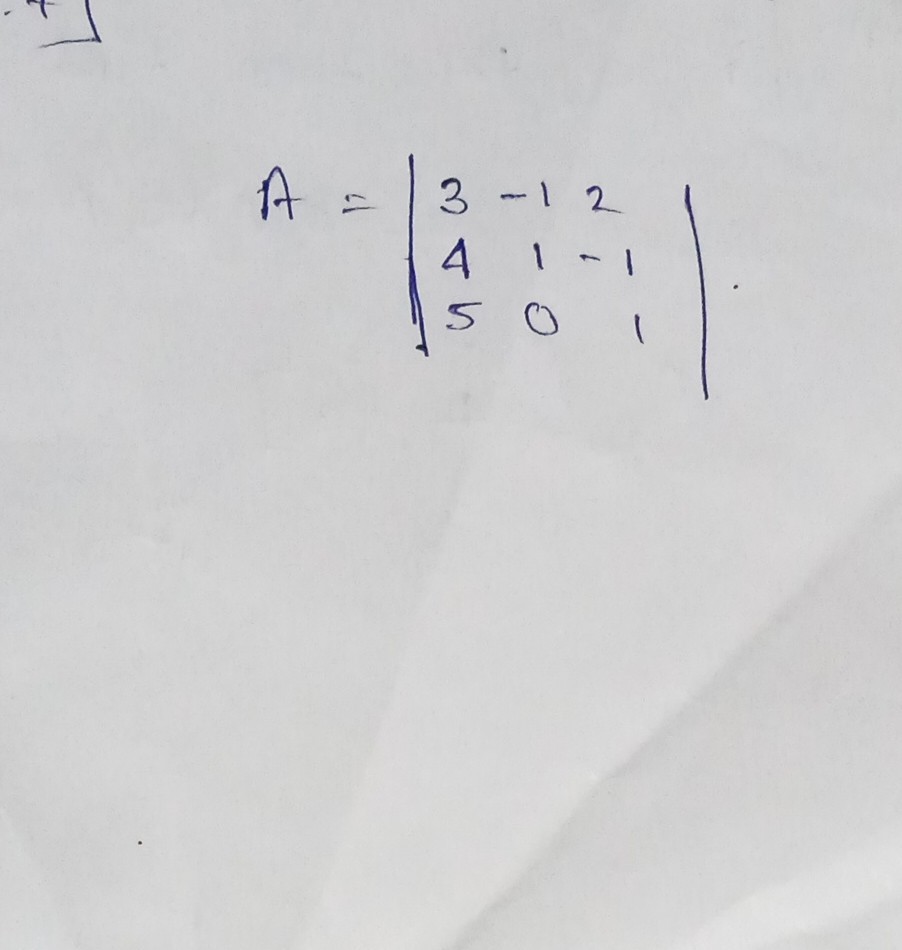 A = | 3 -1 2 |
4 1 -1
5 0 1